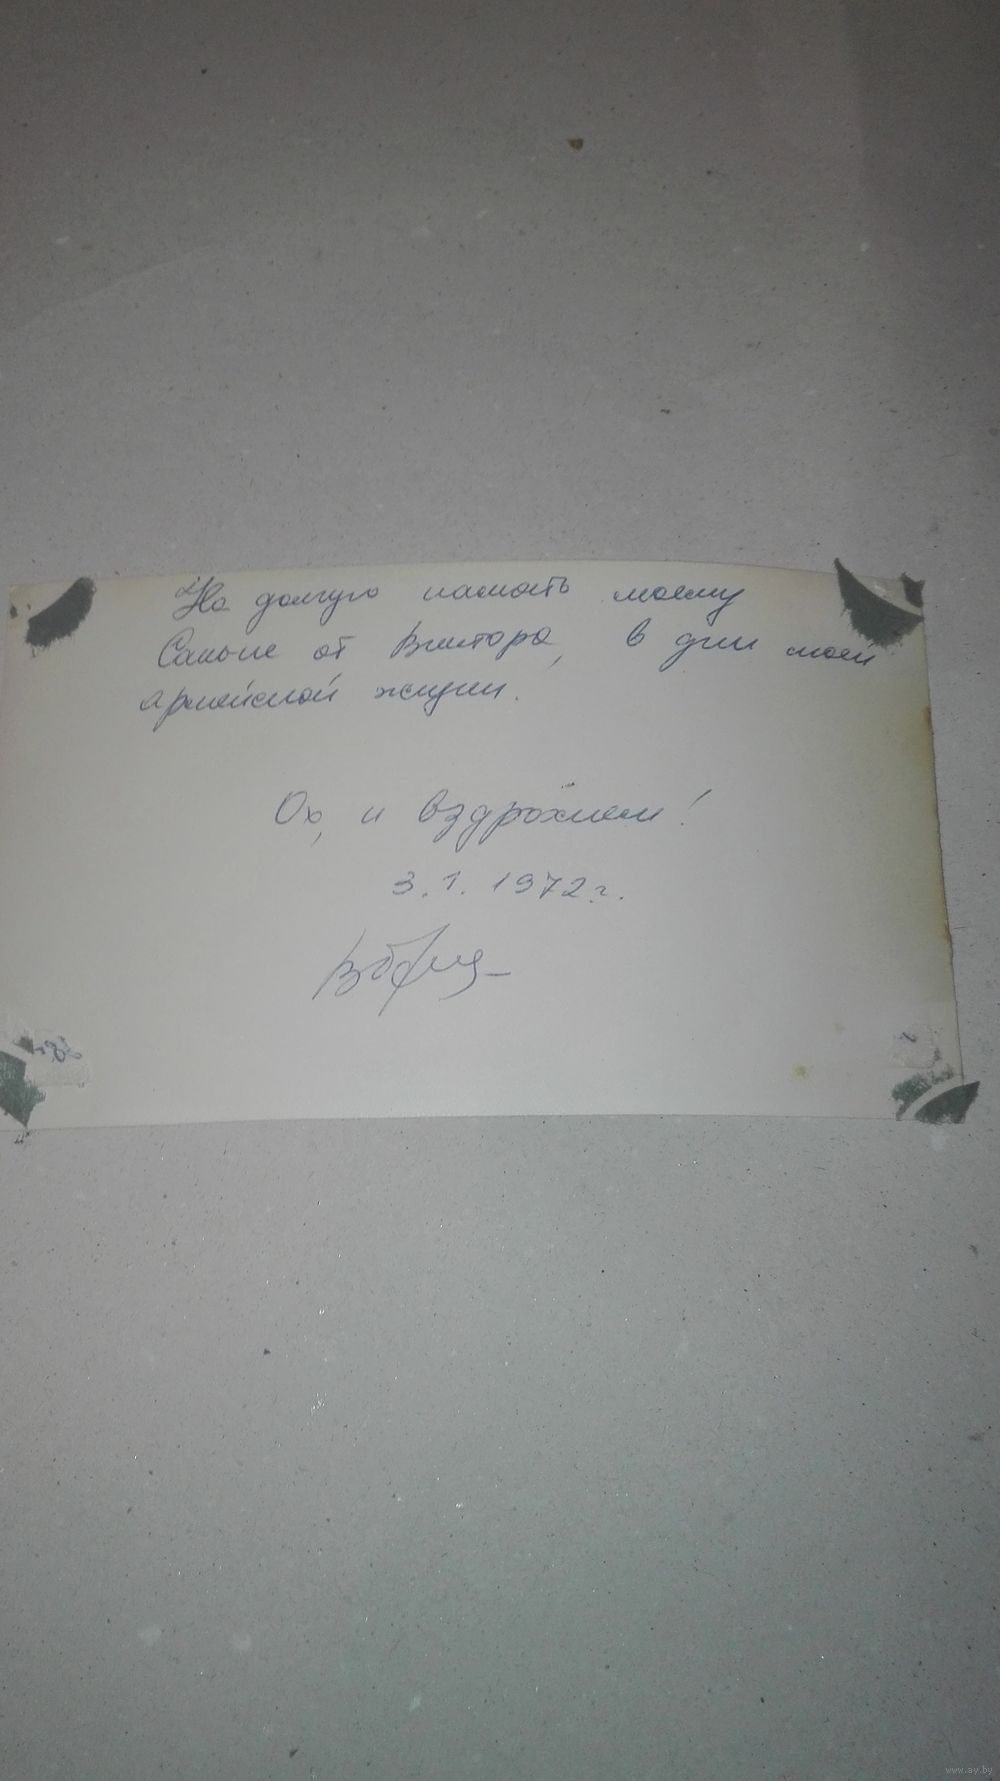 На долгую память моему
Саньке от Виктора, в дни моей
армейской жизни.
Ох, и вздрогнем!
3.1.1972г.
www.ay.by